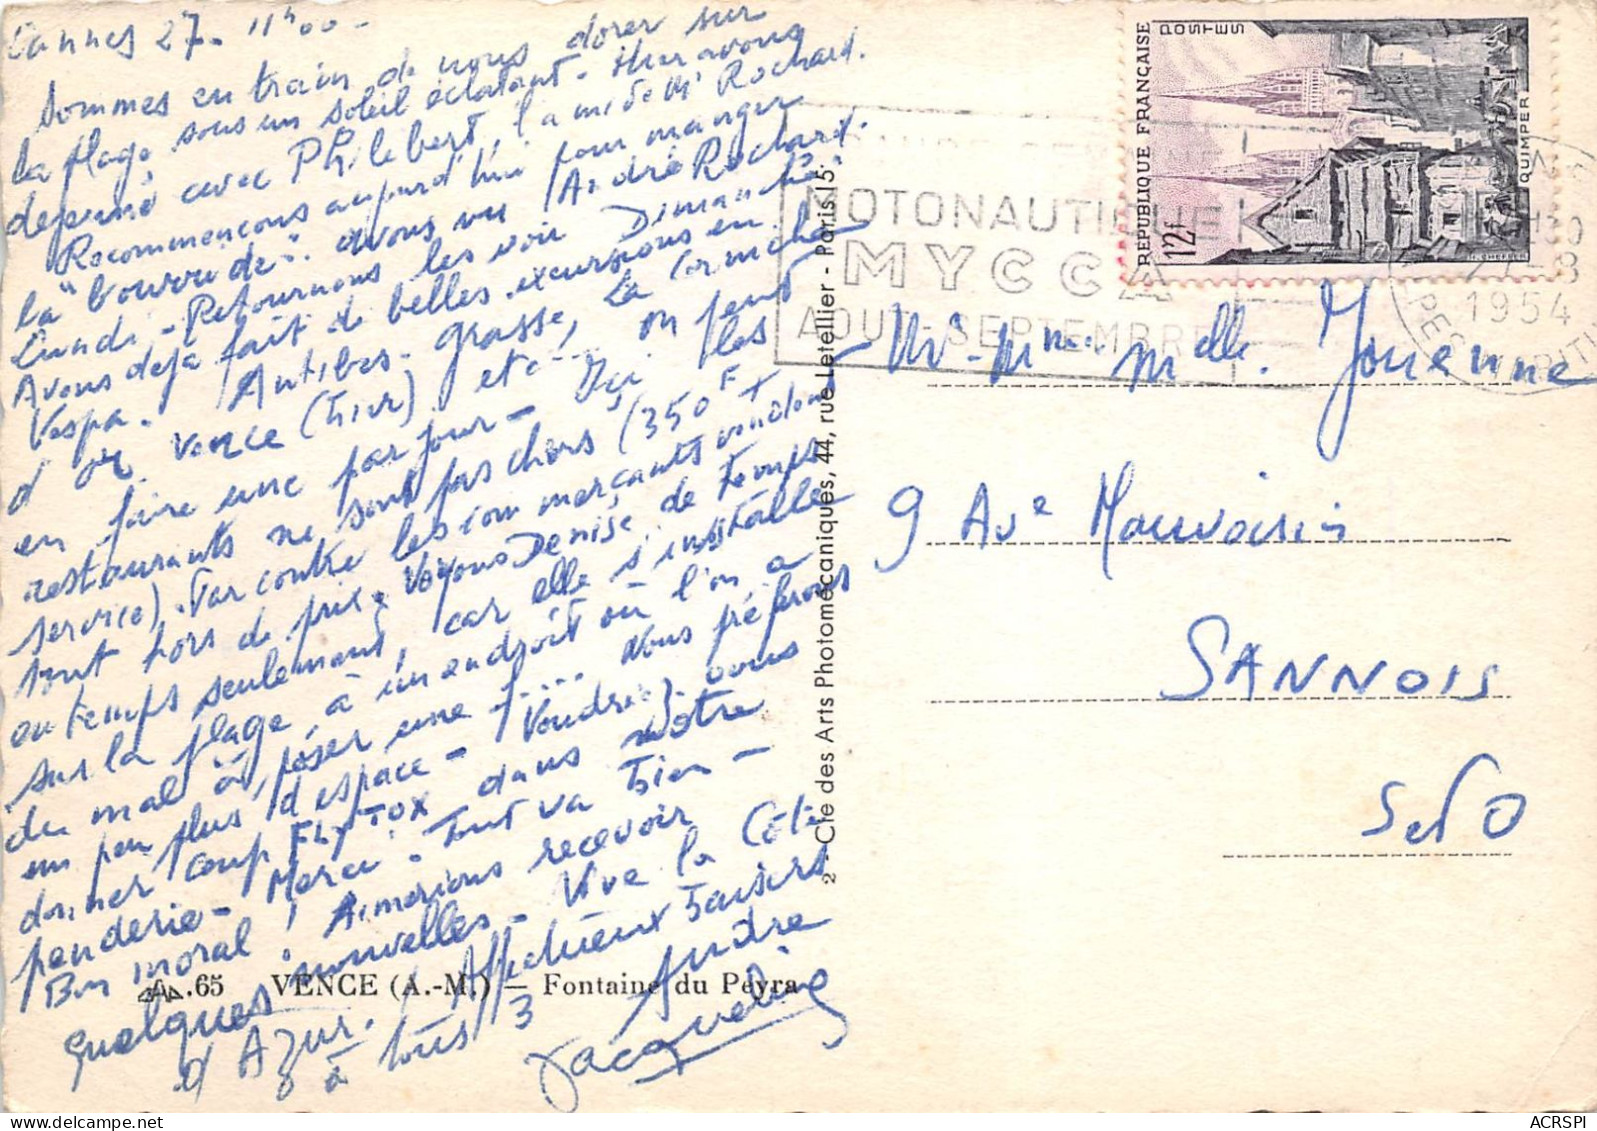 Cannes 27. 11h00 -
Sommes en train de nous dorer sur
la plage, sous un soleil éclatant. Hier avons
déjeuné avec Philebert, l'ami de Mr Rochard.
Recommençons aujourd'hui pour manger
la "bourride". Avons vu André Rochard.
Lundi - Retournons les voir Dimanche
Avons déjà fait de belles excursions en
Vespa. Antibes - Grasse, La Corniche
d'or, Vence (hier) etc... on peut
en faire une par jour - Ici les
restaurants ne sont pas chers (350F T
service). Par contre les commerçants vendent
tout hors de prix. Voyons Denise de temps
en temps seulement, car elle s'installe
sur la plage à un endroit où l'on a
du mal à poser une f.... Nous préférons
un peu plus d'espace - Voudriez vous
donner coup FLYTOX dans notre
penderie - Merci. Tout va bien -
Bon moral! Aimerions recevoir
quelques nouvelles - Vive la Côte
d'Azur. Affectueux baisers
à tous 3 Andre
Jacqueline
.65 VENCE (A.-M.) — Fontaine du Peyra
2 - Cie des Arts Photomécaniques, 44, rue Letellier - Paris 15e
MOTONAUTIQUE
MYCCA
AOUT - SEPTEMBRE
REPUBLIQUE FRANÇAISE
POSTES
12f
QUIMPER
30
27-8
1954
Mr - Mme. Melle. Jouenne
9 Ave Mauvoisin
SANNOIS
S et O
ACRSPI